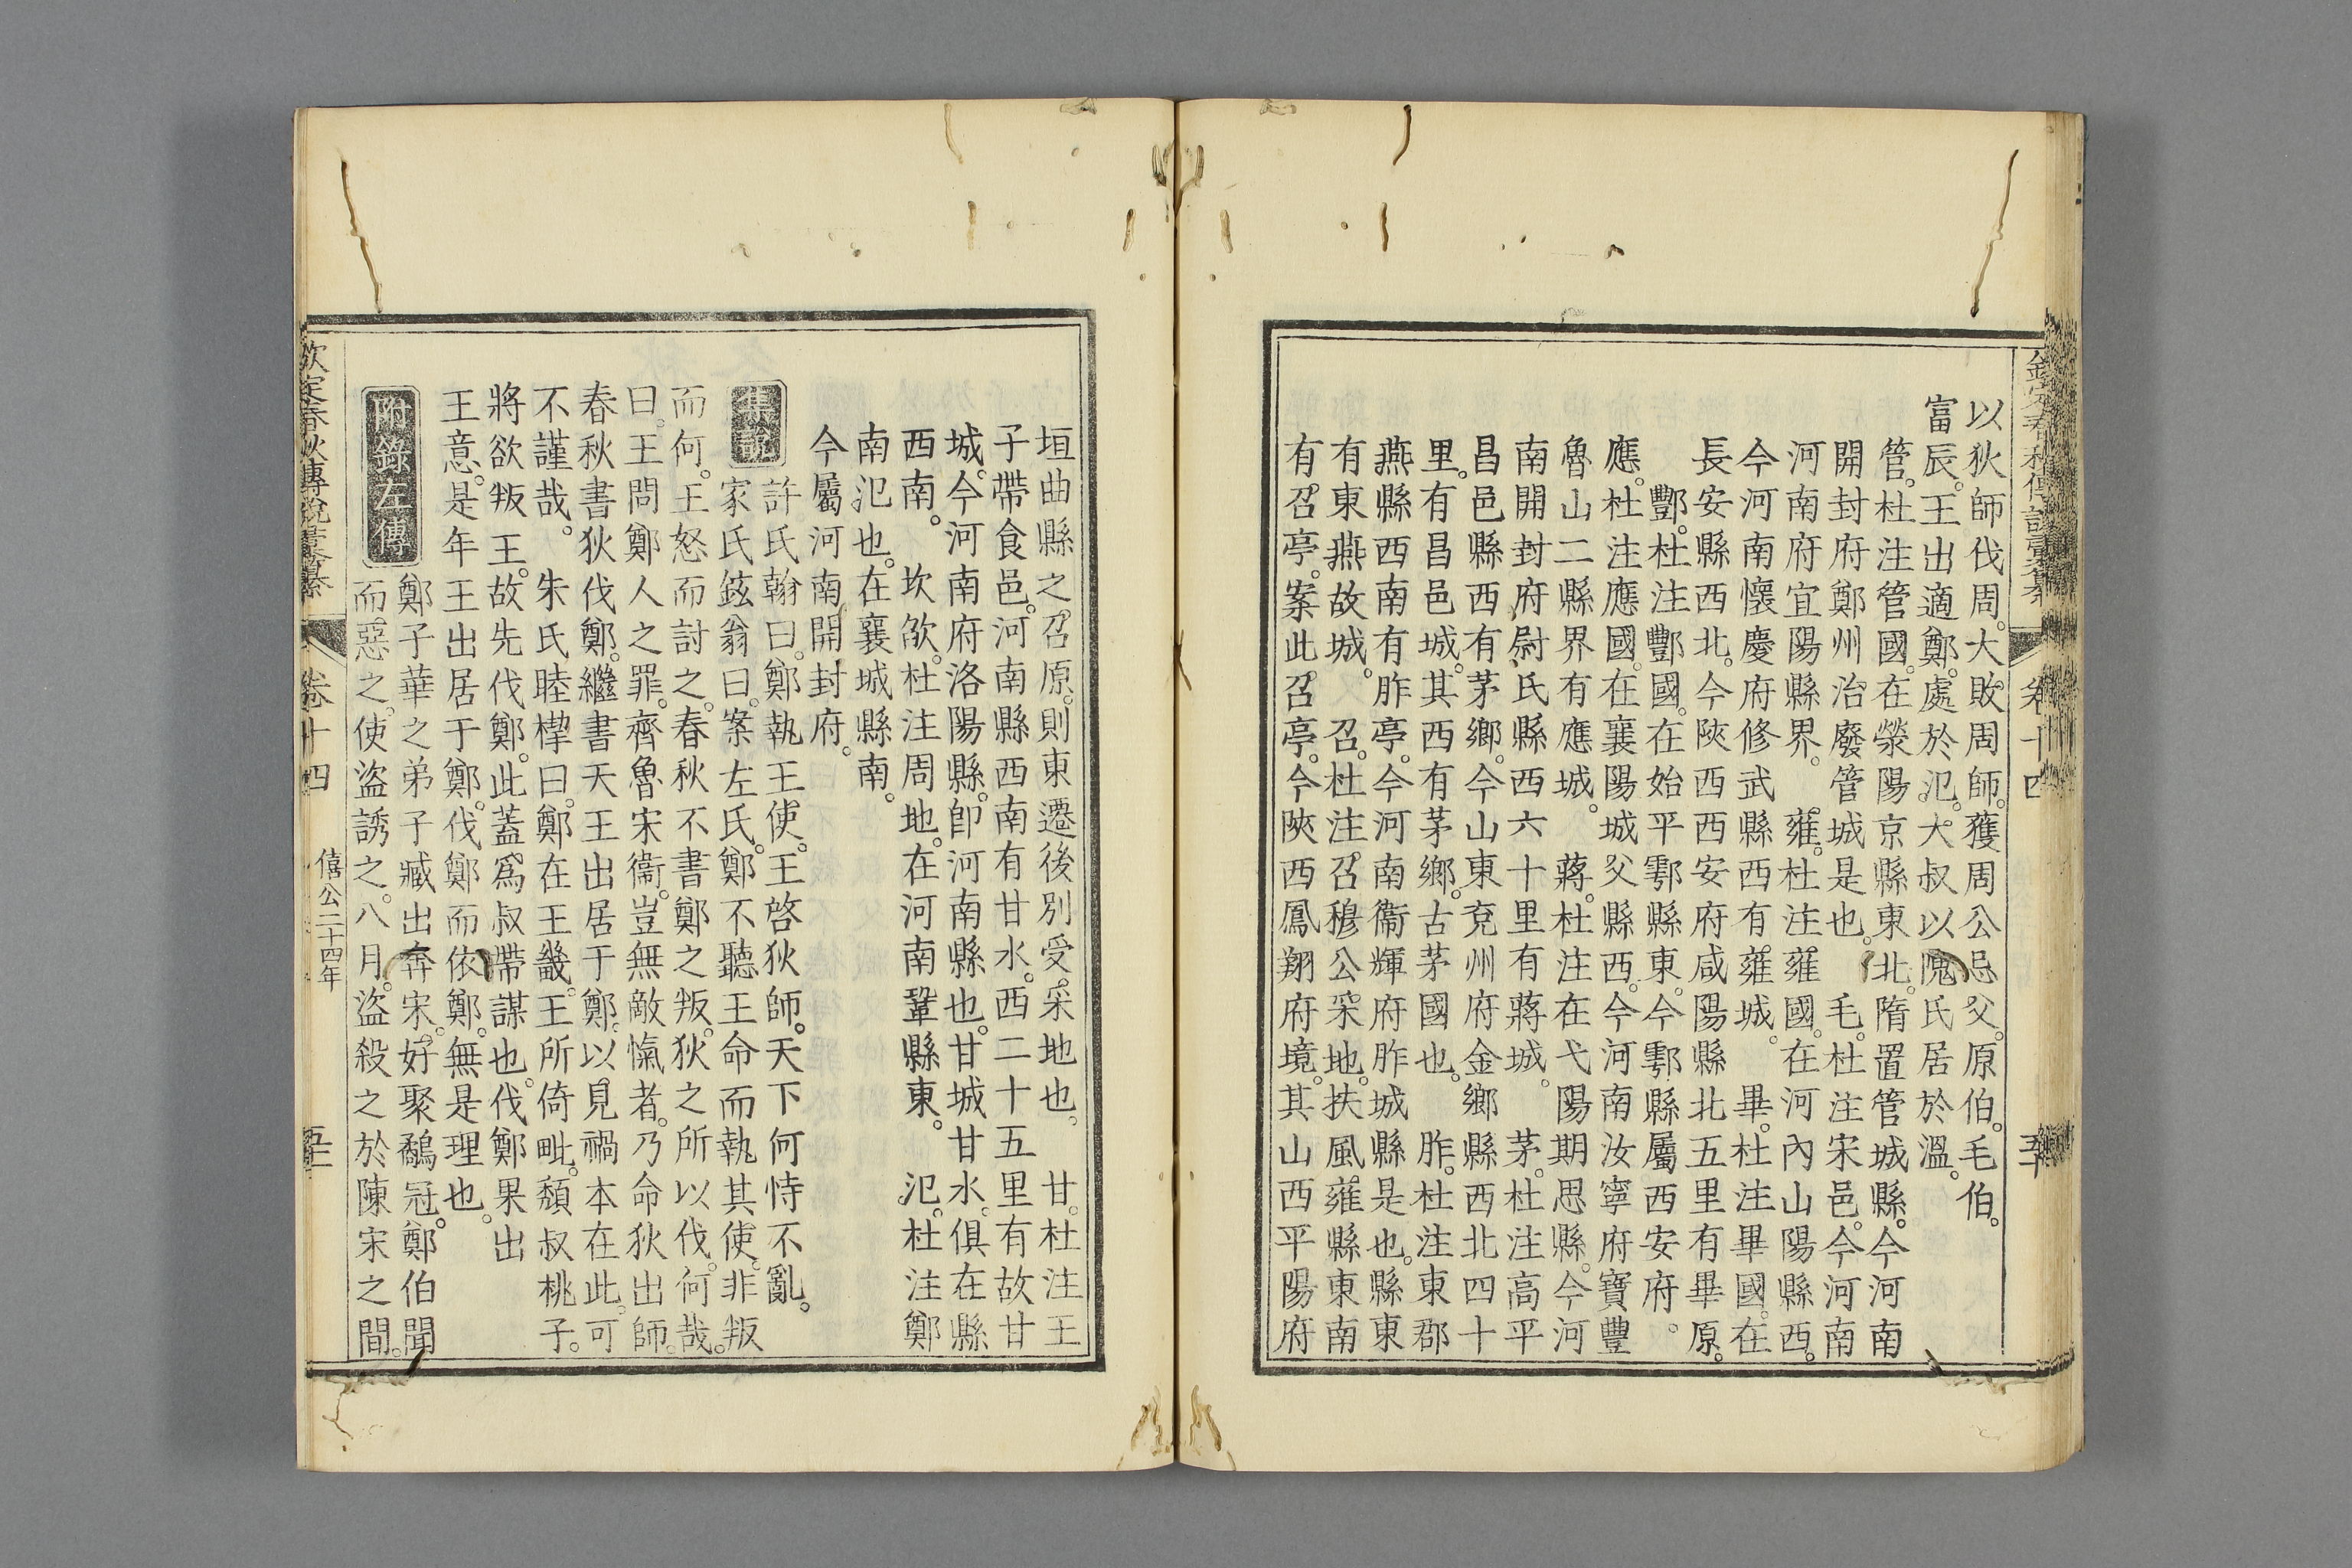 以狄師伐周。大敗周師。獲周公忌父。原伯。毛伯。
富辰。王出適鄭。處於氾。大叔以隗氏居於溫。
管。杜注管國。在滎陽京縣東北。隋置管城縣。今河南
開封府鄭州治廢管城是也。 毛。杜注宋邑。今河南
河南府宜陽縣界。 雍。杜注雍國。在河內山陽縣西。
今河南懷慶府修武縣西有雍城。 畢。杜注畢國。在
長安縣西北。今陝西西安府咸陽縣北五里有畢原。
酆。杜注酆國。在始平鄠縣東。今鄠縣屬西安府。
應。杜注應國。在襄陽城父縣西。今河南汝寧府寶豐
魯山二縣界有應城。 蔣。杜注在弋陽期思縣。今河
南開封府尉氏縣西六十里有蔣城。 茅。杜注高平
昌邑縣西有茅鄉。今山東兗州府金鄉縣西北四十
里。有昌邑城。其西有茅鄉。古茅國也。 胙。杜注東郡
燕縣西南有胙亭。今河南衞輝府胙城縣是也。縣東
有東燕故城。 召。杜注召穆公采地。扶風雍縣東南
有召亭。案此召亭。今陝西鳳翔府境。其山西平陽府
欽定春秋傳說彙纂 卷十四
垣曲縣之召原。則東遷後別受采地也。 甘。杜注王
子帶食邑。河南縣西南有甘水。西二十五里有故甘
城。今河南府洛陽縣。卽河南縣也。甘城甘水。俱在縣
西南。 坎欿。杜注周地。在河南鞏縣東。 氾。杜注鄭
南氾也。在襄城縣南。
今屬河南開封府。
集說 許氏翰曰。鄭執王使。王啓狄師。天下何恃不亂。
家氏鉉翁曰。案左氏。鄭不聽王命而執其使。非叛
而何。王怒而討之。春秋不書鄭之叛。狄之所以伐。何哉。
曰。王問鄭人之罪。齊魯宋衞。豈無敵愾者。乃命狄出師。
春秋書狄伐鄭。繼書天王出居于鄭。以見禍本在此。可
不謹哉。 朱氏睦㮮曰。鄭在王畿。王所倚毗。頽叔桃子。
將欲叛王。故先伐鄭。此蓋爲叔帶謀也。伐鄭果出
王意。是年王出居于鄭。伐鄭而依鄭。無是理也。
附錄左傳 鄭子華之弟子臧出奔宋。好聚鷸冠。鄭伯聞
而惡之。使盜誘之。八月。盜殺之於陳宋之間。
欽定春秋傳說彙纂 卷十四 僖公二十四年 五十一